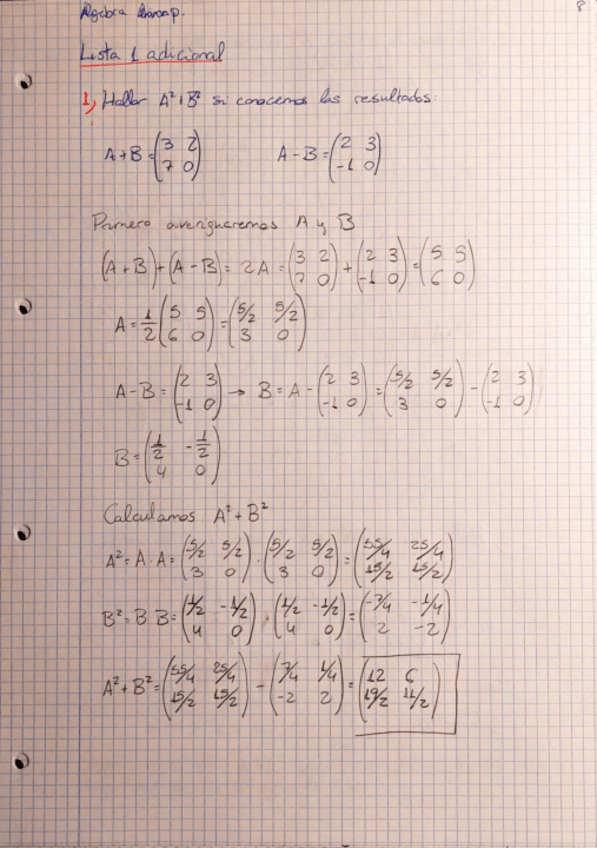 8
Álgebra
Lista 1 adicional
1) Hallar A²+B² si conocemos los resultados:
A+B = (3 2; 7 0) A-B = (2 3; -1 0)
Primero averiguaremos A y B
(A+B)+(A-B) = 2A = (3 2; 7 0) + (2 3; -1 0) = (5 5; 6 0)
A = 1/2 (5 5; 6 0) = (5/2 5/2; 3 0)
A-B = (2 3; -1 0) → B = A - (2 3; -1 0) = (5/2 5/2; 3 0) - (2 3; -1 0)
B = (1/2 -1/2; 4 0)
Calculamos A²+B²
A² = A·A = (5/2 5/2; 3 0) · (5/2 5/2; 3 0) = (55/4 25/4; 15/2 15/2)
B² = B·B = (1/2 -1/2; 4 0) · (1/2 -1/2; 4 0) = (-7/4 -1/4; 2 -2)
A²+B² = (55/4 25/4; 15/2 15/2) - (7/4 1/4; -2 2) = (12 6; 19/2 11/2)